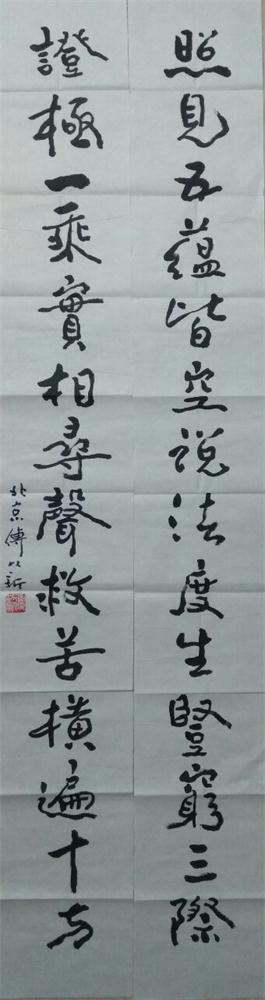 照見五蘊皆空説法度生豎窮三際
證極一乘實相尋聲救苦橫遍十方
北京傅以新